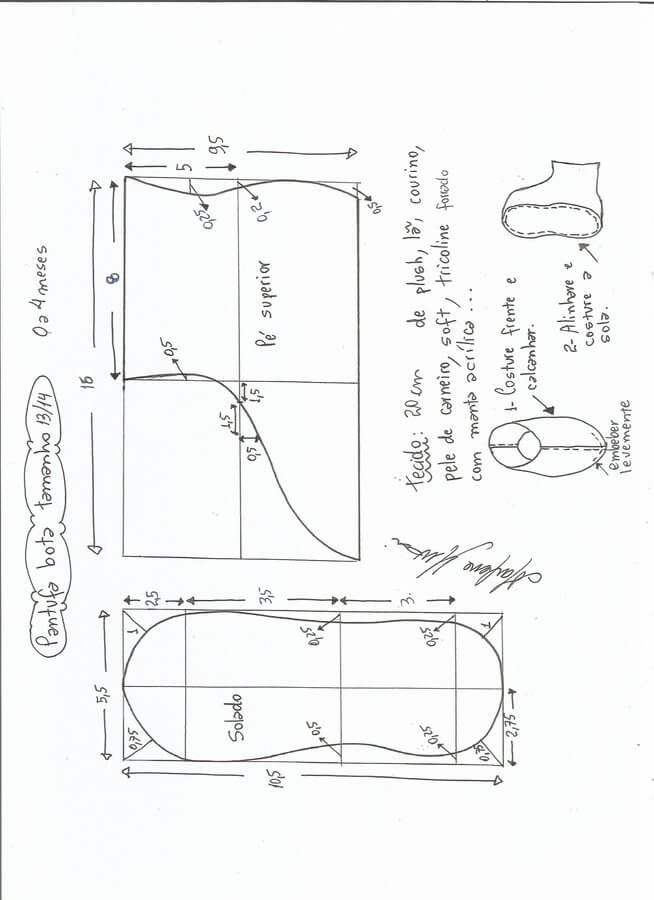 Pantufa bota tamanho 13/14
0 a 4 meses
18
8
9,5
5
0,25
0,2
0,5
Pé superior
0,5
1,5
1,5
0,5
Tecido: 20 cm de plush, lã, courino,
pele de carneiro, soft, tricoline forrado
com manta acrílica...
1- Costure frente e
calcanhar.
embeber
levemente
2- Alinhave e
costure a
sola.
5,5
2,5
3,5
3.
1
0,75
Solado
0,25
0,25
1
0,5
0,25
0,75
2,75
10,5